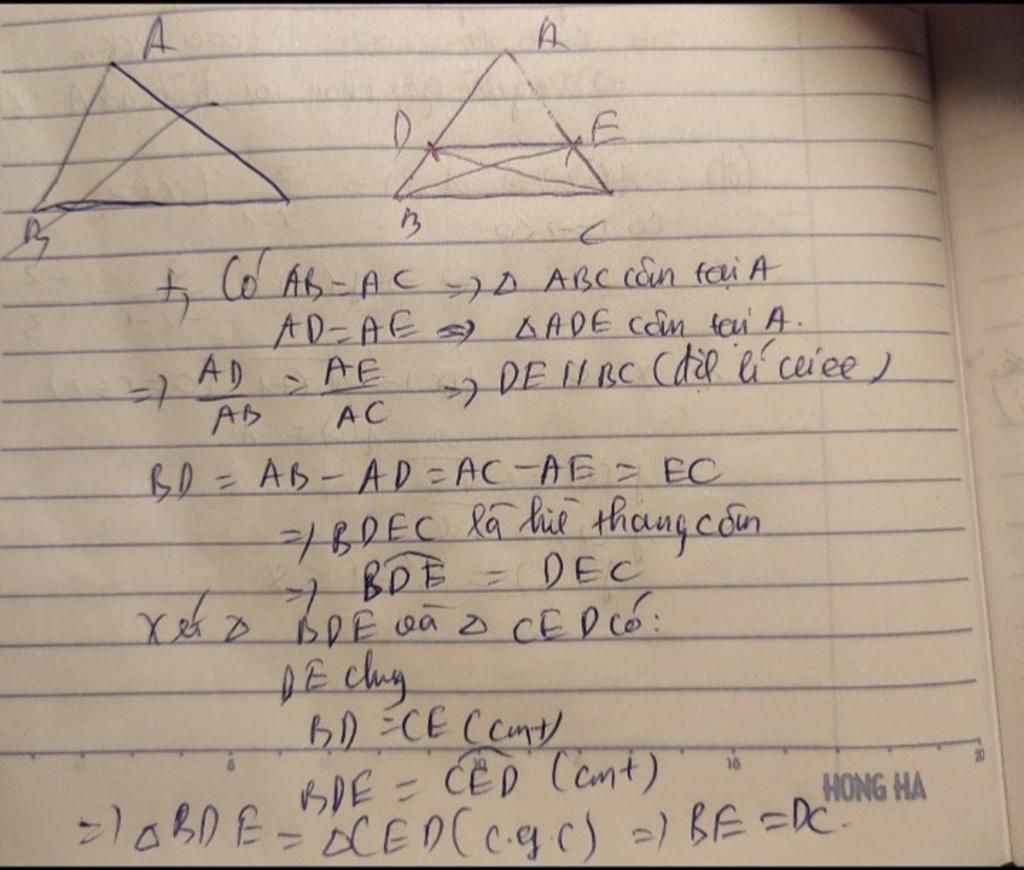 A
B
A
D E
B C
+, Có AB = AC => Δ ABC cân tại A
AD = AE => ΔADE cân tại A.
=> AD/AB = AE/AC => DE // BC (đl lí)
BD = AB - AD = AC - AE = EC
=> BDEC là hì thang cân
=> BDE = DEC
Xét Δ BDE và Δ CED có:
DE chung
BD = CE (cmt)
BDE = CED (cmt)
=> ΔBDE = ΔCED (c.g.c) => BE = DC.
HONG HA